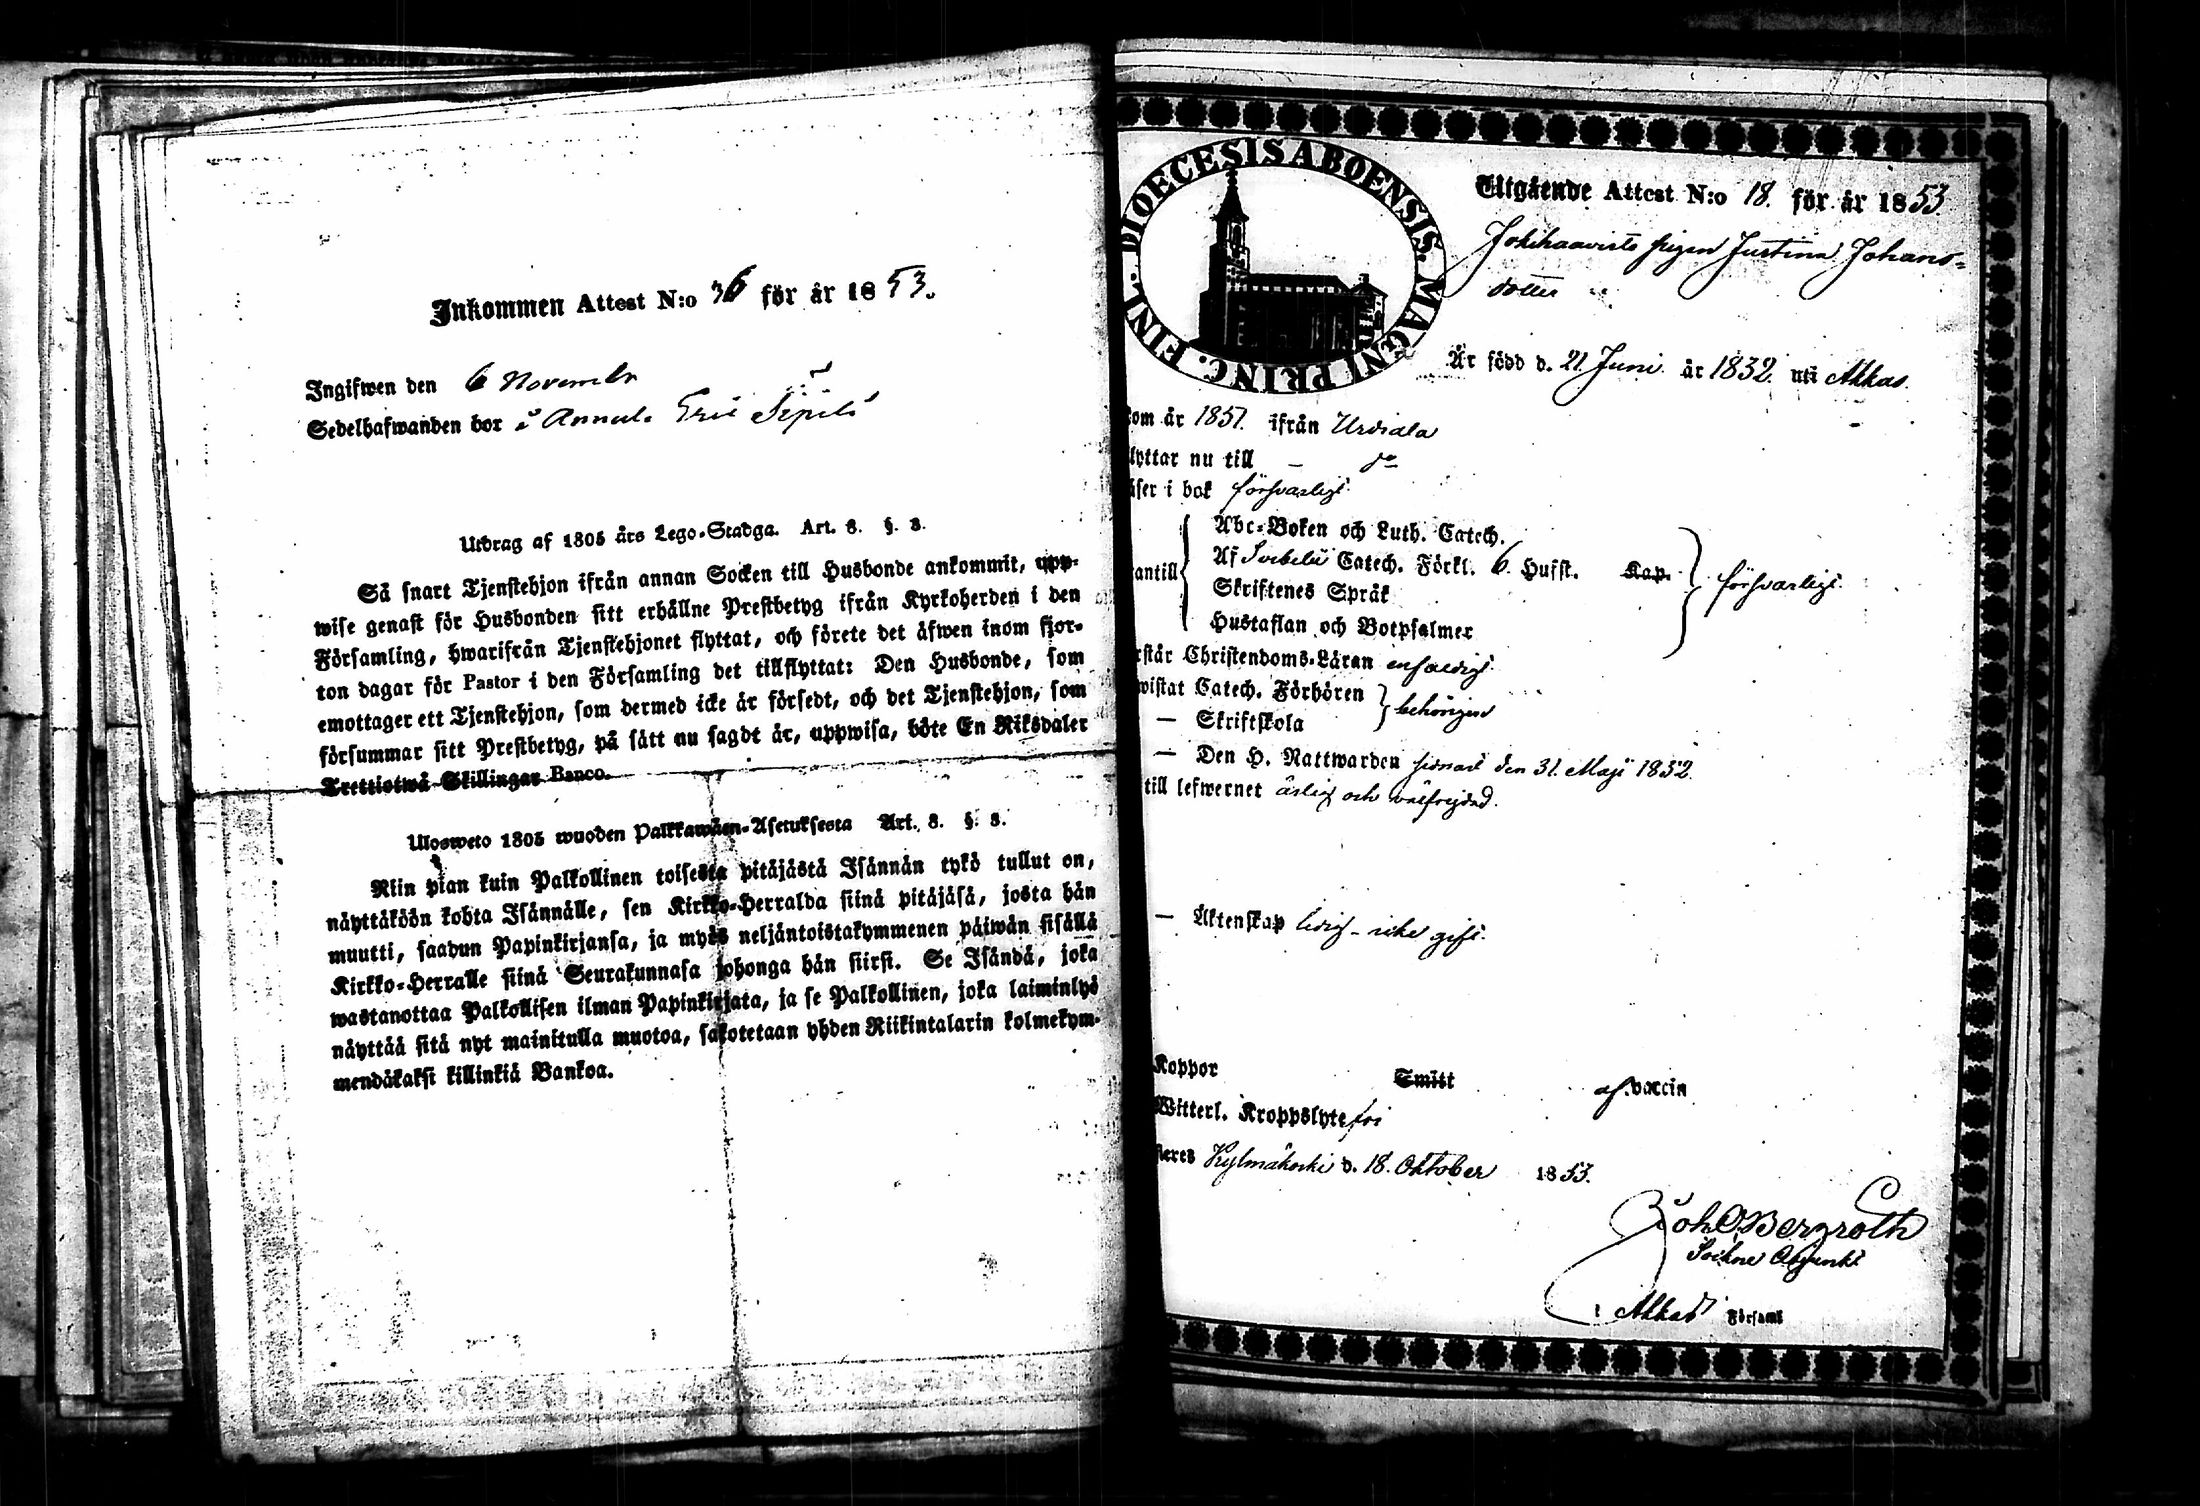 Inkommen Attest N:o 36 för år 1853.
Ingifwen den 6 November
Sedelhafwanden bor i Annula Eric Sipilä
Utdrag af 1805 års Lego-Stadga. Art. 8. §. 3.
Så snart Tjenstehjon ifrån annan Socken till Husbonde ankommit, upp-
wise genast för Husbonden sitt erhållne Prestbetyg ifrån Kyrkoherden i den
Församling, hwarifrån Tjenstehjonet flyttat, och förete det äfwen inom fjor-
ton dagar för Pastor i den Församling det tillflyttat: Den Husbonde, som
emottager ett Tjenstehjon, som dermed icke är försedt, och det Tjenstehjon, som
försummar sitt Prestbetyg, på sätt nu sagdt är, uppwisa, böte En Riksdaler
Trettiotwå Skillingar Banco.
Ulosweto 1805 wuoden Palkkawäen-Asetuksesta Art. 8. §. 3.
Niin pian kuin Palkollinen toisesta pitäjästä Isännän tykö tullut on,
näyttäköön kohta Isännälle, sen Kirkko-Herralda siinä pitäjäsä, josta hän
muutti, saadun Papinkirjansa, ja myös neljäntoistakymmenen päiwän sisällä
Kirkko-Herralle siinä Seurakunnasa johonga hän siirsi. Se Isändä, joka
wastanottaa Palkollisen ilman Papinkirjata, ja se Palkollinen, joka laiminlyö
näyttää sitä nyt mainitulla muotoa, sakotetaan yhden Riikintalarin kolmekym-
mendäkaksi killinkiä Bankoa.
DIOECESIS ABOENSIS. MAGNI PRINC. FINL.
Utgående Attest N:o 18. för år 1853.
Jokihaavisto pigan Justina Johans-
dotter
Är född d. 21 Juni år 1832. uti Akkas.
kom år 1851. ifrån Urdiala
flyttar nu till – do
läser i bok försvarligt
Abc-Boken och Luth. Catech.
antill Af Svebelii Catech. Förkl. 6. Hufst. Kap. försvarligt.
Skriftenes Språk
Hustaflan och Botpsalmer
rstår Christendoms-Läran enfaldigt
wistat Catech. Förhören behörigen
— Skriftskola
— Den H. Nattwarden sednast den 31. Maji 1852
till lefwernet ärlig och välfrejdad.
— Äktenskap ledig – icke gift.
Koppor Smitt af vaccin
Witterl. Kroppslyte fri
steres Kylmäkoski d. 18. Oktober 1853.
Joh O Bergroth
Sockne Adjunkt
i Akkas Förf.aml